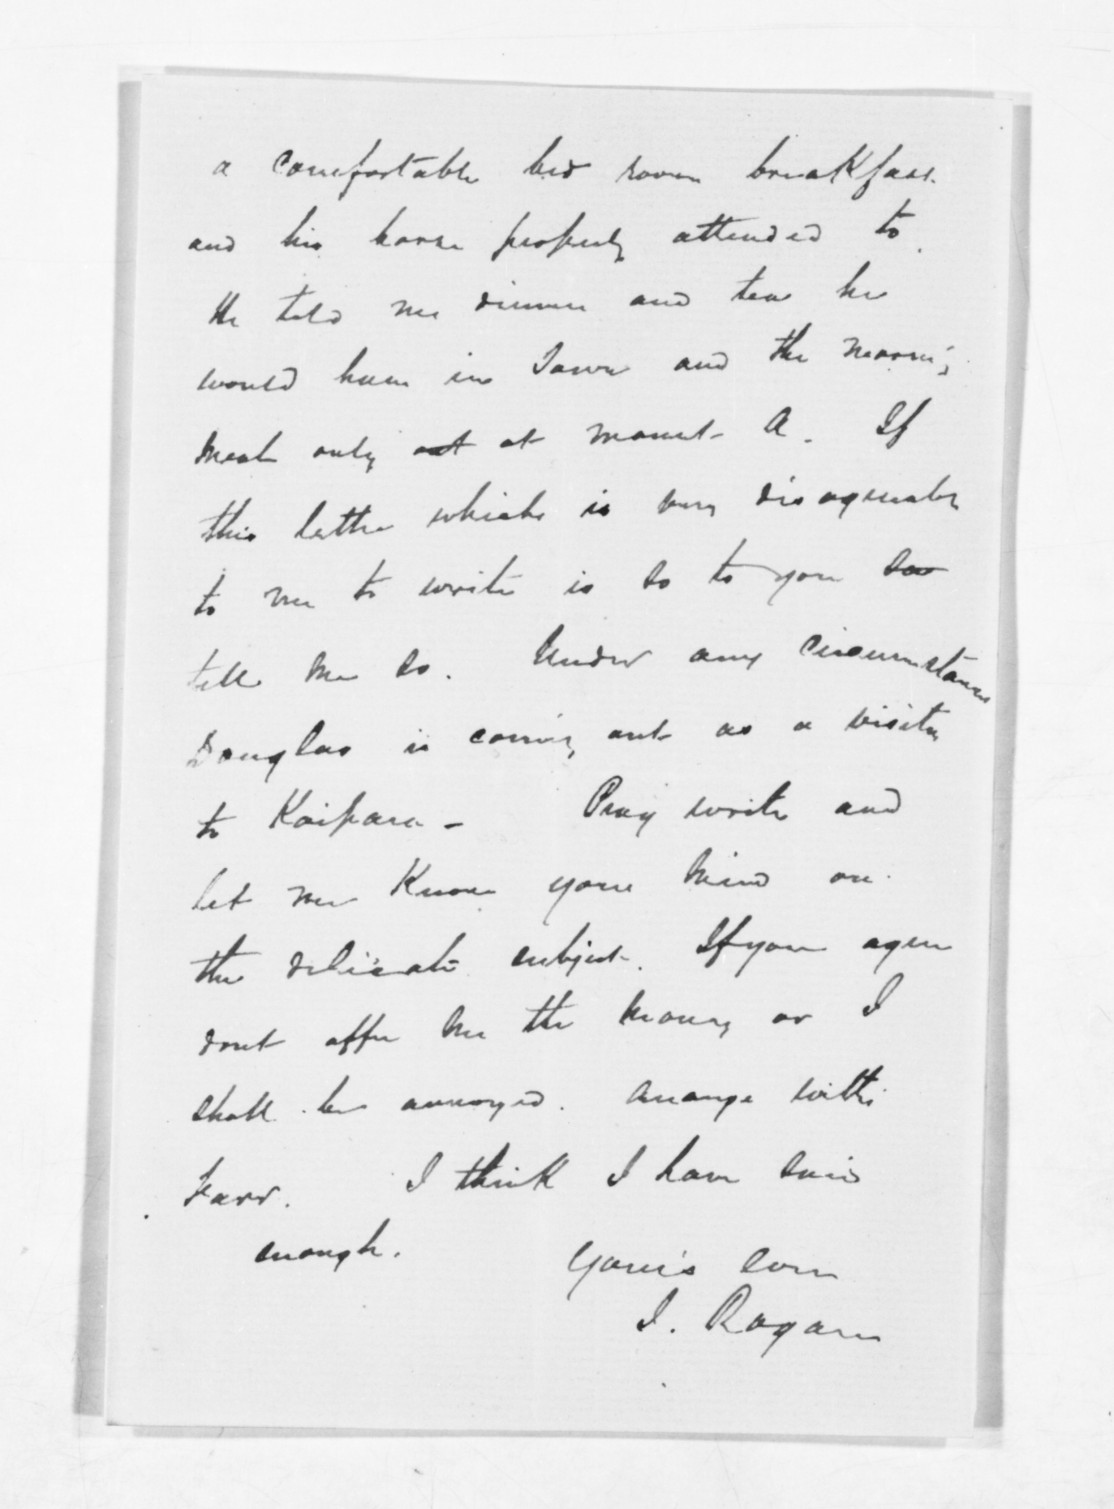 a comfortable bed room breakfast
and his horse properly attended to.
He told me dinner and tea he
would have in Town and the morning
meal only at at Mount A. If
this letter which is very disagreeable
to me to write is so to you so
tell me so. Under any circumstances
Douglas is coming out as a visitor
to Kaipara -  Pray write and
let me Know your mind on
the delicate subject. If you agree
dont offer me the money or I
shall be annoyed. Arrange with
Farr. I think I have said
enough.
Your's ever
J. Rogan